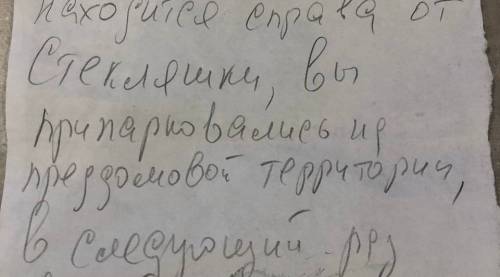 находится справа от
Стекляшки, вы
припарковались на
придомовой территории,
в следующий раз